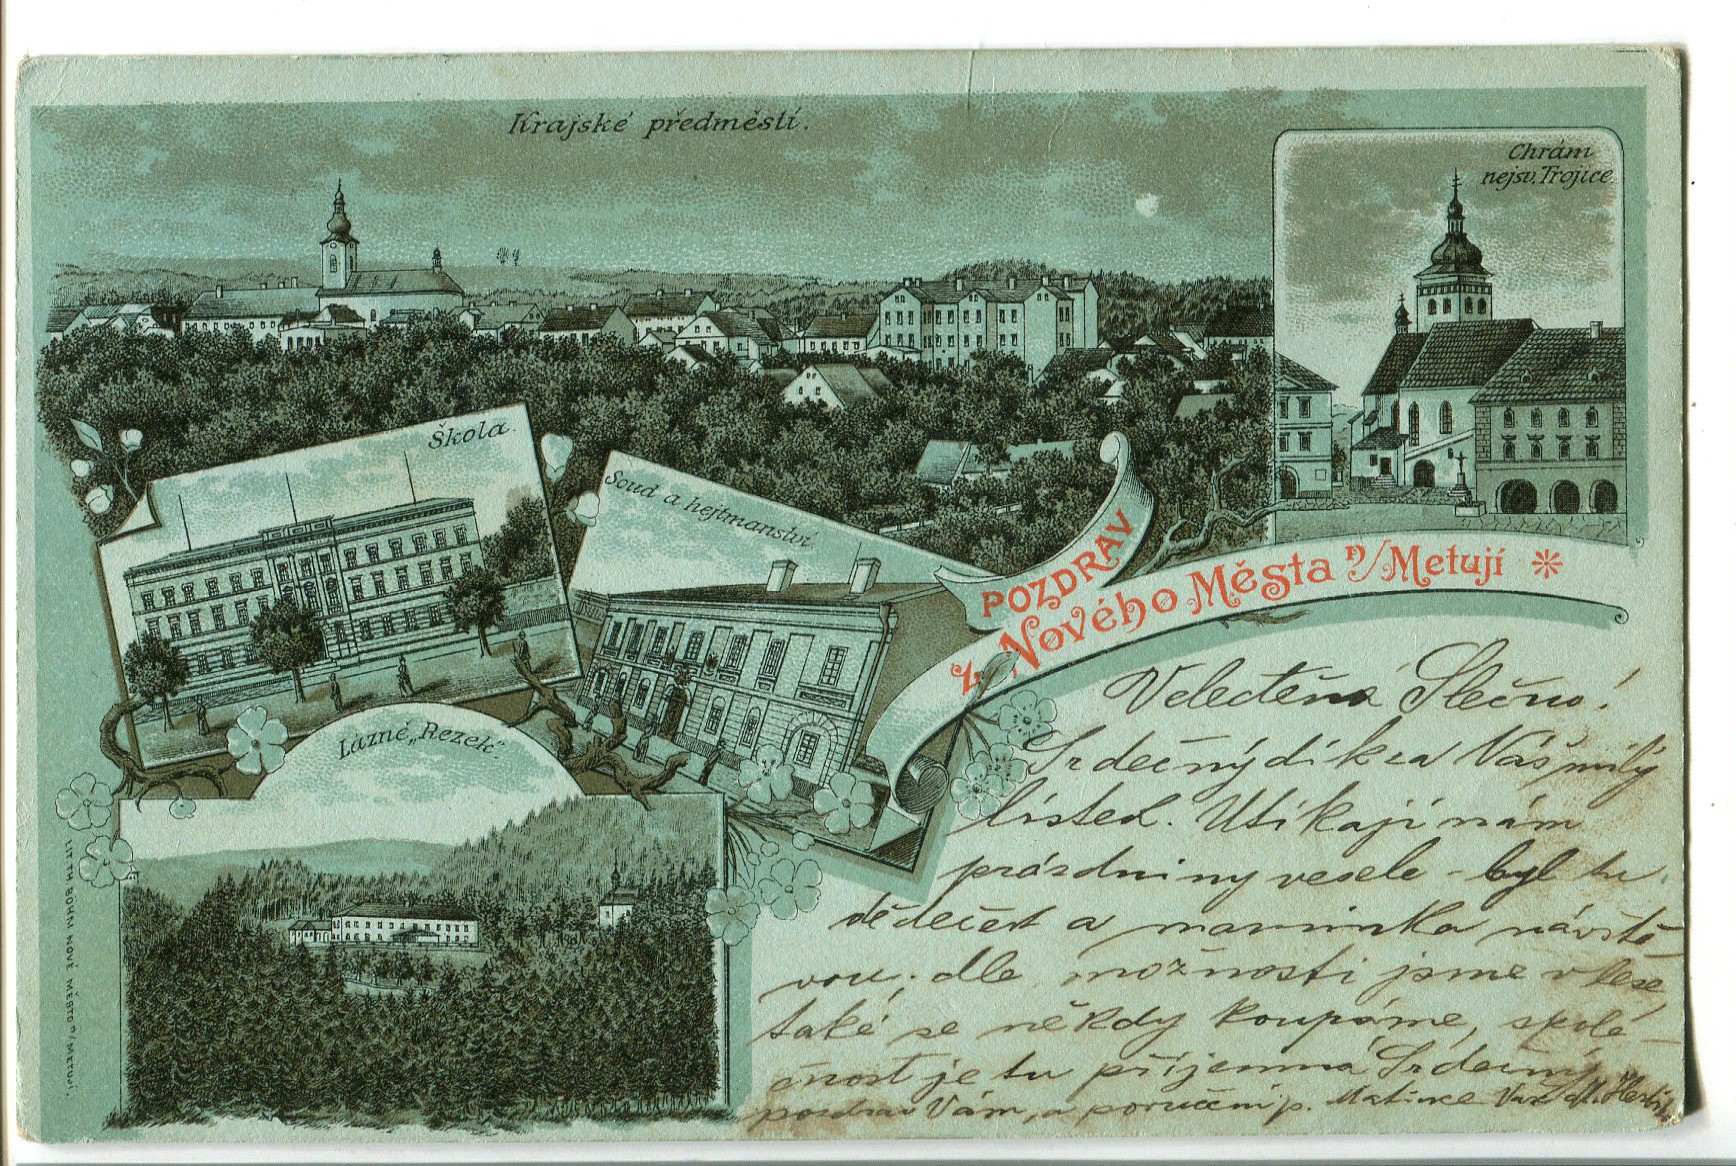 Krajské předměstí.
Chrám
nejsv. Trojice.
Škola.
Soud a hejtmanství
Lázně „Rezek“.
POZDRAV
z Nového Města n/Metují
LITH. BÖHM NOVÉ MĚSTO n/METUJÍ.
Velectěná Slečno!
Srdečný dík za Váš milý
lístek. Utíkají nám
prázdniny vesele - byl tu
dědeček a maminka návště-
vou, dle možnosti jsme v lese,
také se někdy koupáme, spole-
čnost je tu příjemná Srdečný
pozdrav Vám, a poručení p. Matince